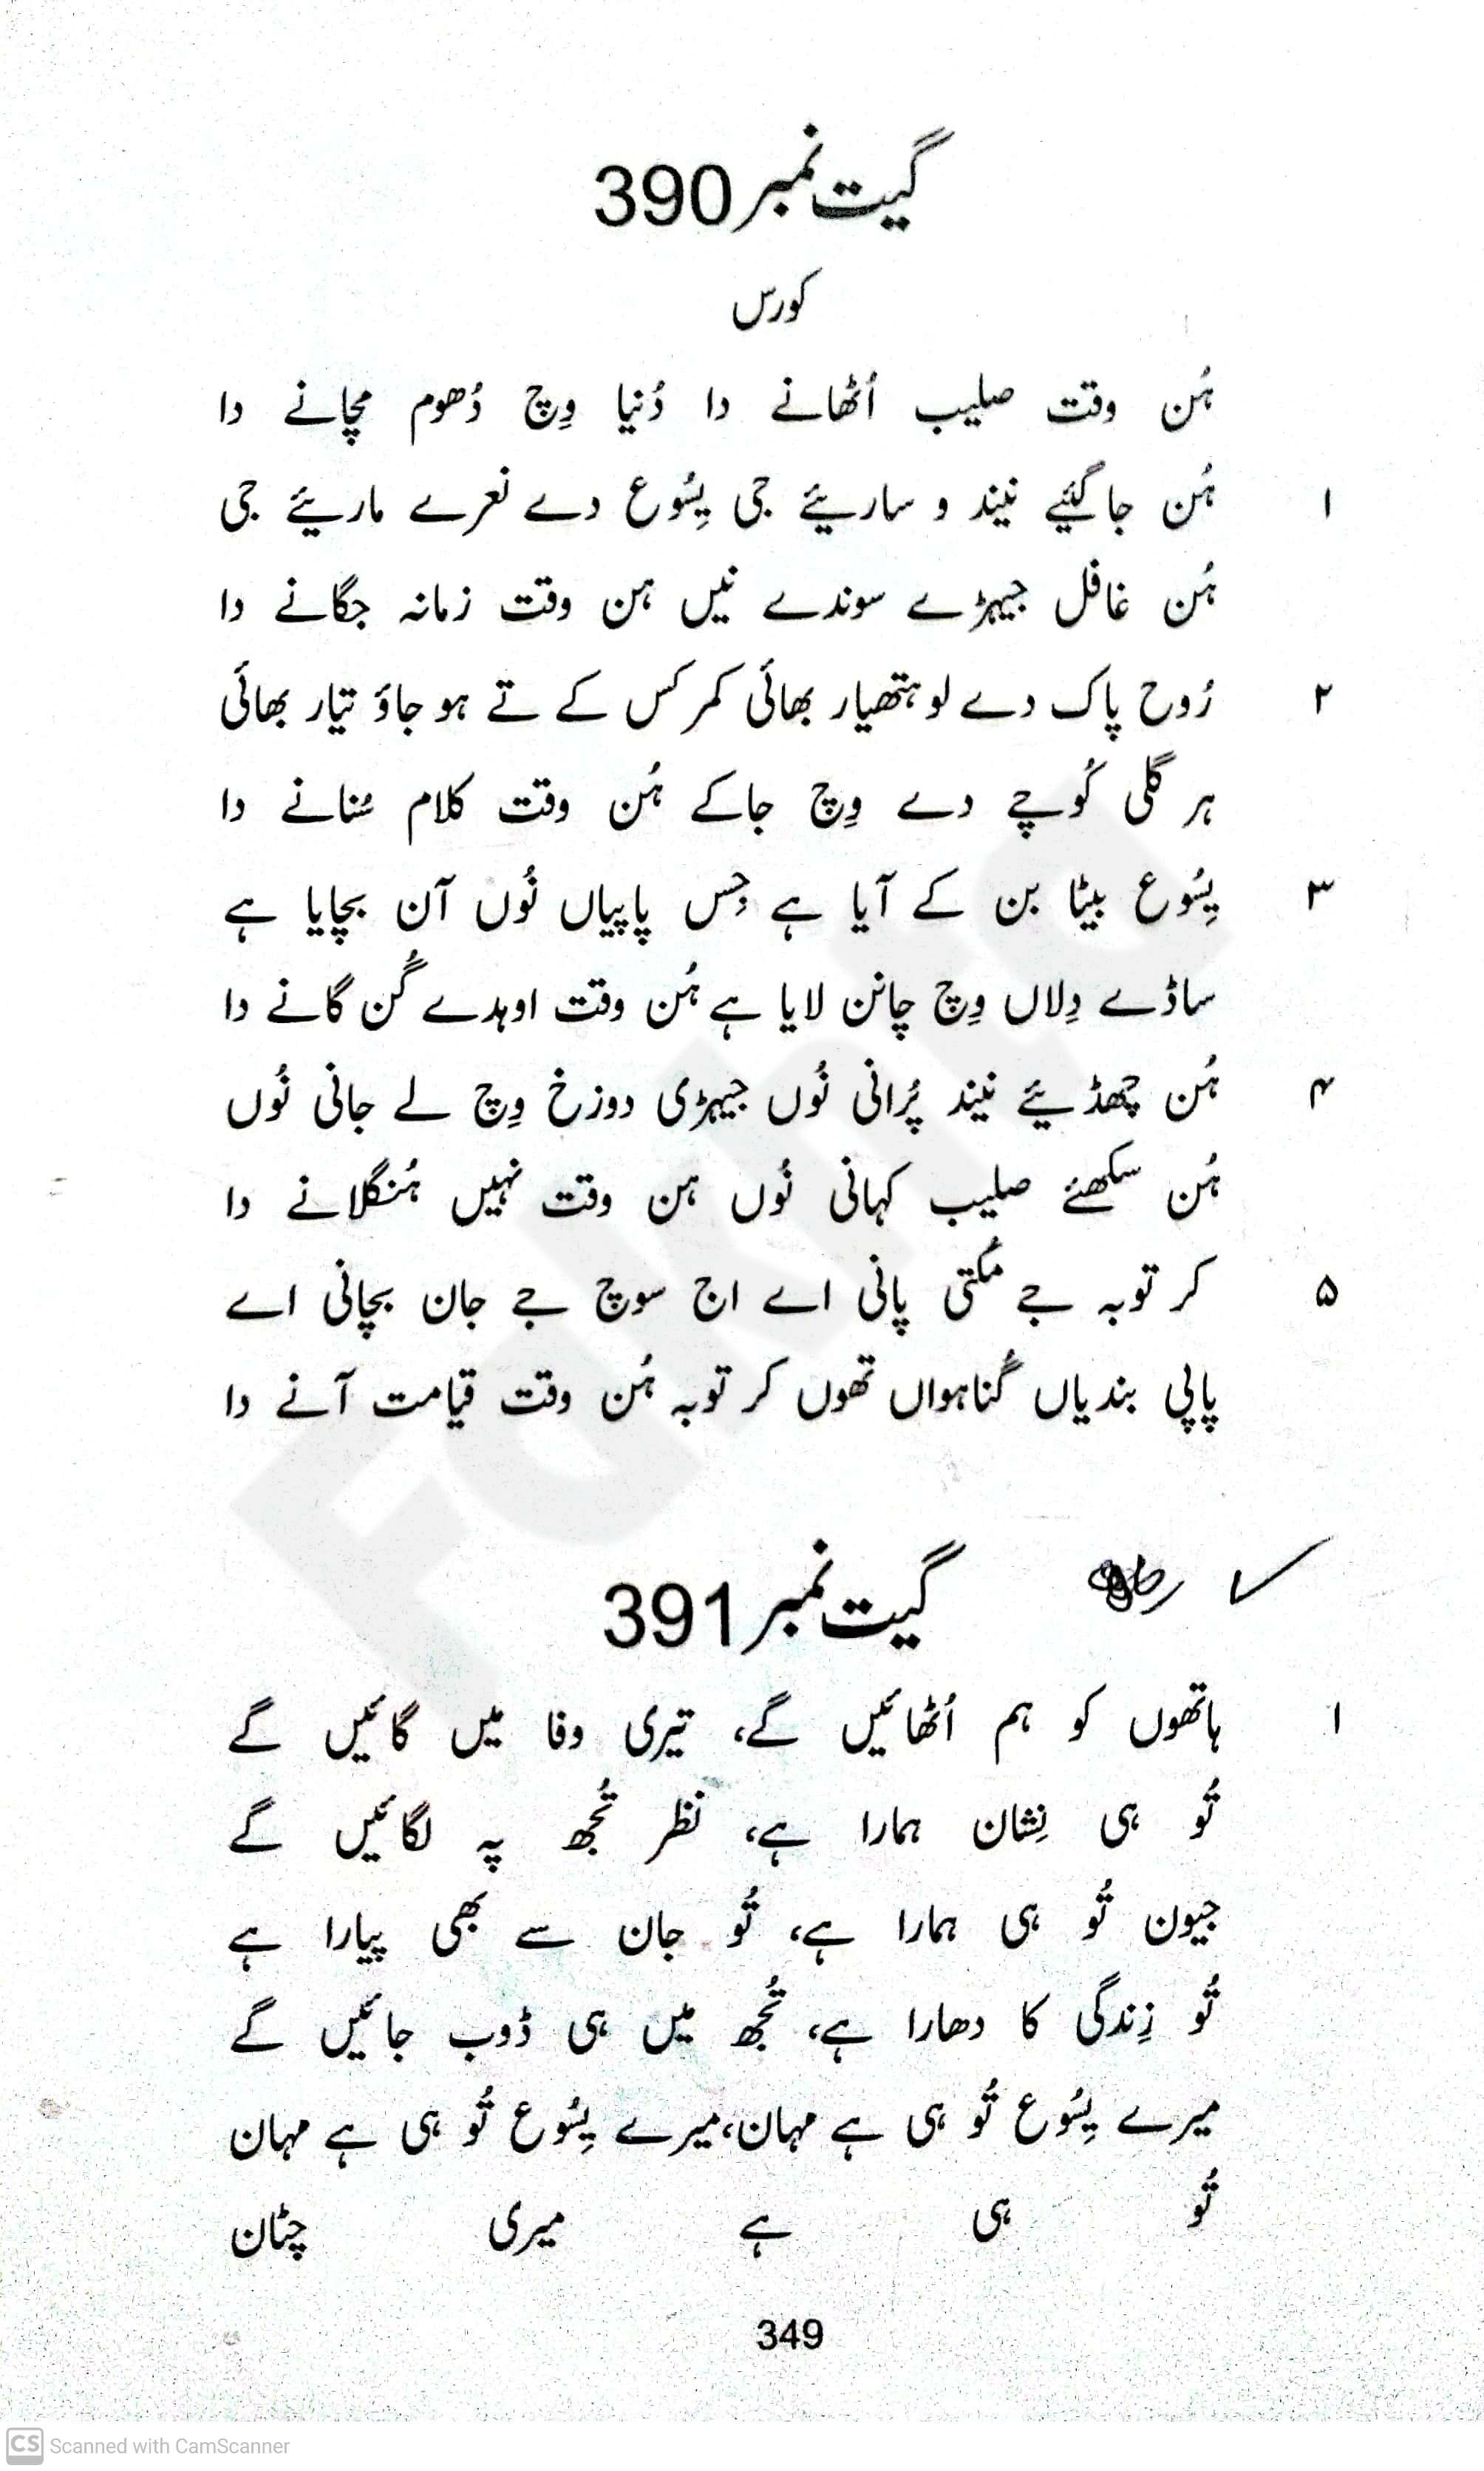 گیت نمبر 390
کورس
ہُن وقت صلیب اُٹھانے دا دُنیا وِچ دُھوم مچانے دا
۱ ہُن جاگئیے نیند و ساریئے جی یِسُوع دے نعرے ماریئے جی
ہُن غافل جیہڑے سوندے نیں ہن وقت زمانہ جگانے دا
۲ رُوح پاک دے لو ہتھیار بھائی کمر کس کے تے ہو جاؤ تیار بھائی
ہر گلی کُوچے دے وِچ جاکے ہُن وقت کلام سُنانے دا
۳ یِسُوع بیٹا بن کے آیا ہے جِس پاپیاں نُوں آن بچایا ہے
ساڈے دِلاں وِچ چانن لایا ہے ہُن وقت اوہدے گُن گانے دا
۴ ہُن چھڈیئے نیند پُرانی نُوں جیہڑی دوزخ وِچ لے جانی نُوں
ہُن سکھئے صلیب کہانی نُوں ہن وقت نہیں ہُنگلانے دا
۵ کر توبہ جے مُکتی پانی اے اج سوچ جے جان بچانی اے
پاپی بندیاں گُناہواں تھوں کر توبہ ہُن وقت قیامت آنے دا
گیت نمبر 391
۱ ہاتھوں کو ہم اُٹھائیں گے، تیری وفا میں گائیں گے
تُو ہی نِشان ہمارا ہے، نظر تُجھ پہ لگائیں گے
جیون تُو ہی ہمارا ہے، تُو جان سے بھی پیارا ہے
تُو زِندگی کا دھارا ہے، تُجھ میں ہی ڈوب جائیں گے
میرے یِسُوع تُو ہی ہے مہان، میرے یِسُوع تُو ہی ہے مہان
تُو ہی ہے میری چٹان
349
CS Scanned with CamScanner